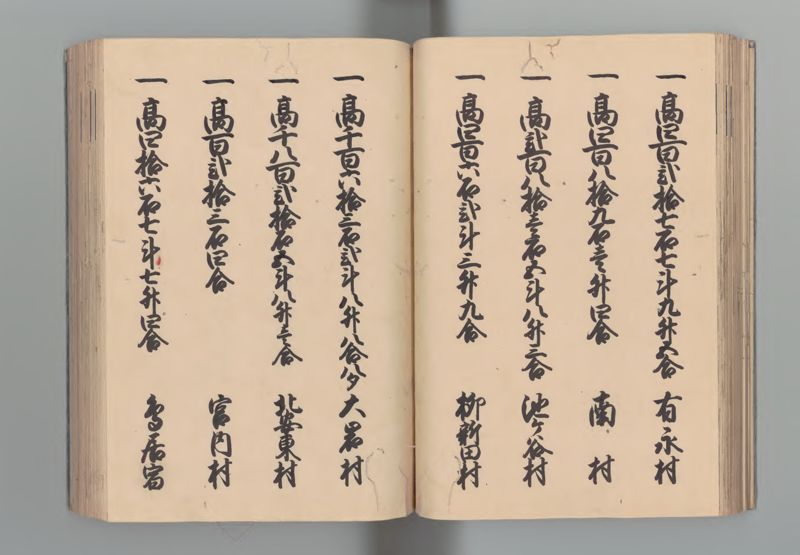 一 高四百弐拾七石七斗九升五合 有永村
一 高四百八拾九石壱升四合 南村
一 高弐百八拾壱石五斗八升三合 池ケ谷村
一 高四百六石弐斗三升九合 柳新田村
一 高千百六拾三石弐斗八升八合八夕 大岩村
一 高千八百弐拾石五斗八升壱合 北安東村
一 高百弐拾三石四合 宮内村
一 高四拾六石七斗七升四合